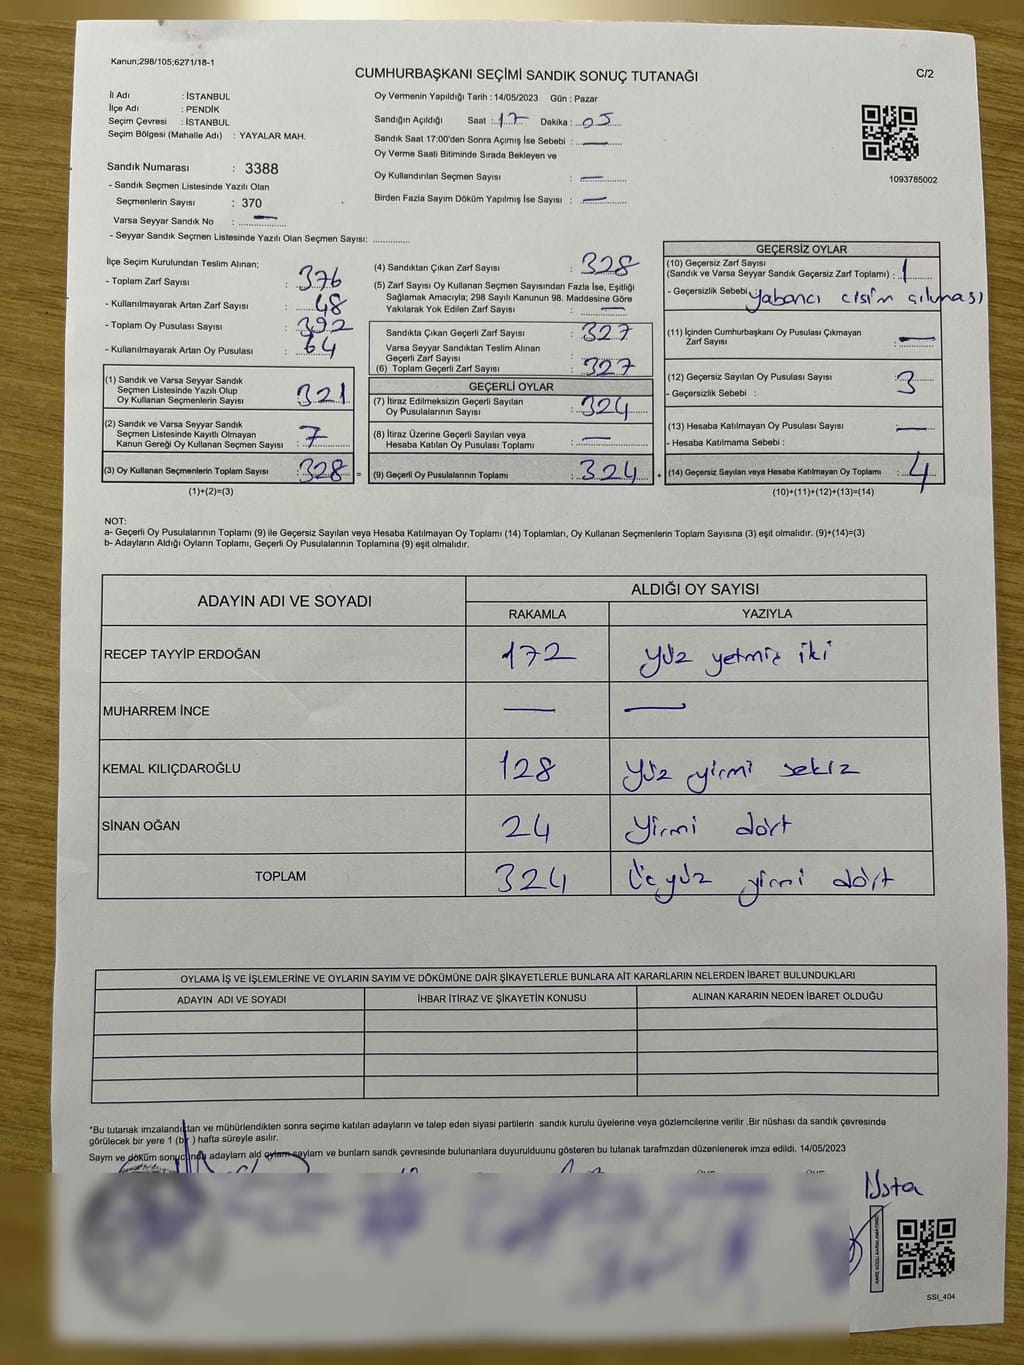 Kanun;298/105;6271/18-1
CUMHURBAŞKANI SEÇİMİ SANDIK SONUÇ TUTANAĞI
C/2
İl Adı : İSTANBUL
İlçe Adı : PENDİK
Seçim Çevresi : İSTANBUL
Seçim Bölgesi (Mahalle Adı) : YAYALAR MAH.
Sandık Numarası : 3388
- Sandık Seçmen Listesinde Yazılı Olan
Seçmenlerin Sayısı : 370
Varsa Seyyar Sandık No : —
- Seyyar Sandık Seçmen Listesinde Yazılı Olan Seçmen Sayısı: ............
Oy Vermenin Yapıldığı Tarih : 14/05/2023 Gün : Pazar
Sandığın Açıldığı Saat : 17 Dakika : 05
Sandık Saat 17:00'den Sonra Açımış İse Sebebi : —
Oy Verme Saati Bitiminde Sırada Bekleyen ve
Oy Kullandırılan Seçmen Sayısı : —
Birden Fazla Sayım Döküm Yapılmış İse Sayısı : —
1093785002
İlçe Seçim Kurulundan Teslim Alınan;
- Toplam Zarf Sayısı : 376
- Kullanılmayarak Artan Zarf Sayısı : 48
- Toplam Oy Pusulası Sayısı : 392
- Kullanılmayarak Artan Oy Pusulası : 64
(1) Sandık ve Varsa Seyyar Sandık
Seçmen Listesinde Yazılı Olup
Oy Kullanan Seçmenlerin Sayısı : 321
(2) Sandık ve Varsa Seyyar Sandık
Seçmen Listesinde Kayıtlı Olmayan
Kanun Gereği Oy Kullanan Seçmen Sayısı : 7
(3) Oy Kullanan Seçmenlerin Toplam Sayısı : 328 =
(1)+(2)=(3)
(4) Sandıktan Çıkan Zarf Sayısı : 328
(5) Zarf Sayısı Oy Kullanan Seçmen Sayısından Fazla İse, Eşitliği
Sağlamak Amacıyla; 298 Sayılı Kanunun 98. Maddesine Göre
Yakılarak Yok Edilen Zarf Sayısı : —
Sandıkta Çıkan Geçerli Zarf Sayısı : 327
Varsa Seyyar Sandıktan Teslim Alınan
Geçerli Zarf Sayısı
(6) Toplam Geçerli Zarf Sayısı : 327
GEÇERLİ OYLAR
(7) İtiraz Edilmeksizin Geçerli Sayılan
Oy Pusulalarının Sayısı : 324
(8) İtiraz Üzerine Geçerli Sayılan veya
Hesaba Katılan Oy Pusulası Toplamı : —
(9) Geçerli Oy Pusulalarının Toplamı : 324 +
GEÇERSİZ OYLAR
(10) Geçersiz Zarf Sayısı
(Sandık ve Varsa Seyyar Sandık Geçersiz Zarf Toplamı) : 1
- Geçersizlik Sebebi yabancı cisim çıkması
(11) İçinden Cumhurbaşkanı Oy Pusulası Çıkmayan
Zarf Sayısı : —
(12) Geçersiz Sayılan Oy Pusulası Sayısı : 3
- Geçersizlik Sebebi :
(13) Hesaba Katılmayan Oy Pusulası Sayısı : —
- Hesaba Katılmama Sebebi :
(14) Geçersiz Sayılan veya Hesaba Katılmayan Oy Toplamı : 4
(10)+(11)+(12)+(13)=(14)
NOT:
a- Geçerli Oy Pusulalarının Toplamı (9) ile Geçersiz Sayılan veya Hesaba Katılmayan Oy Toplamı (14) Toplamları, Oy Kullanan Seçmenlerin Toplam Sayısına (3) eşit olmalıdır. (9)+(14)=(3)
b- Adayların Aldığı Oyların Toplamı, Geçerli Oy Pusulalarının Toplamına (9) eşit olmalıdır.
ADAYIN ADI VE SOYADI
ALDIĞI OY SAYISI
RAKAMLA YAZIYLA
RECEP TAYYİP ERDOĞAN 172 yüz yetmiş iki
MUHARREM İNCE — —
KEMAL KILIÇDAROĞLU 128 Yüz yirmi sekiz
SİNAN OĞAN 24 Yirmi dört
TOPLAM 324 Üçyüz yirmi dört
OYLAMA İŞ VE İŞLEMLERİNE VE OYLARIN SAYIM VE DÖKÜMÜNE DAİR ŞİKAYETLERLE BUNLARA AİT KARARLARIN NELERDEN İBARET BULUNDUKLARI
ADAYIN ADI VE SOYADI İHBAR İTİRAZ VE ŞİKAYETİN KONUSU ALINAN KARARIN NEDEN İBARET OLDUĞU
*Bu tutanak imzalandıktan ve mühürlendikten sonra seçime katılan adayların ve talep eden siyasi partilerin sandık kurulu üyelerine veya gözlemcilerine verilir .Bir nüshası da sandık çevresinde
görülecek bir yere 1 (bir) hafta süreyle asılır.
Sayım ve döküm sonucunda adayların ald oyların sayıları ve bunların sandık çevresinde bulunanlara duyurulduunu gösteren bu tutanak tarafmzdan düzenlenerek imza edildi. 14/05/2023
SSI_404